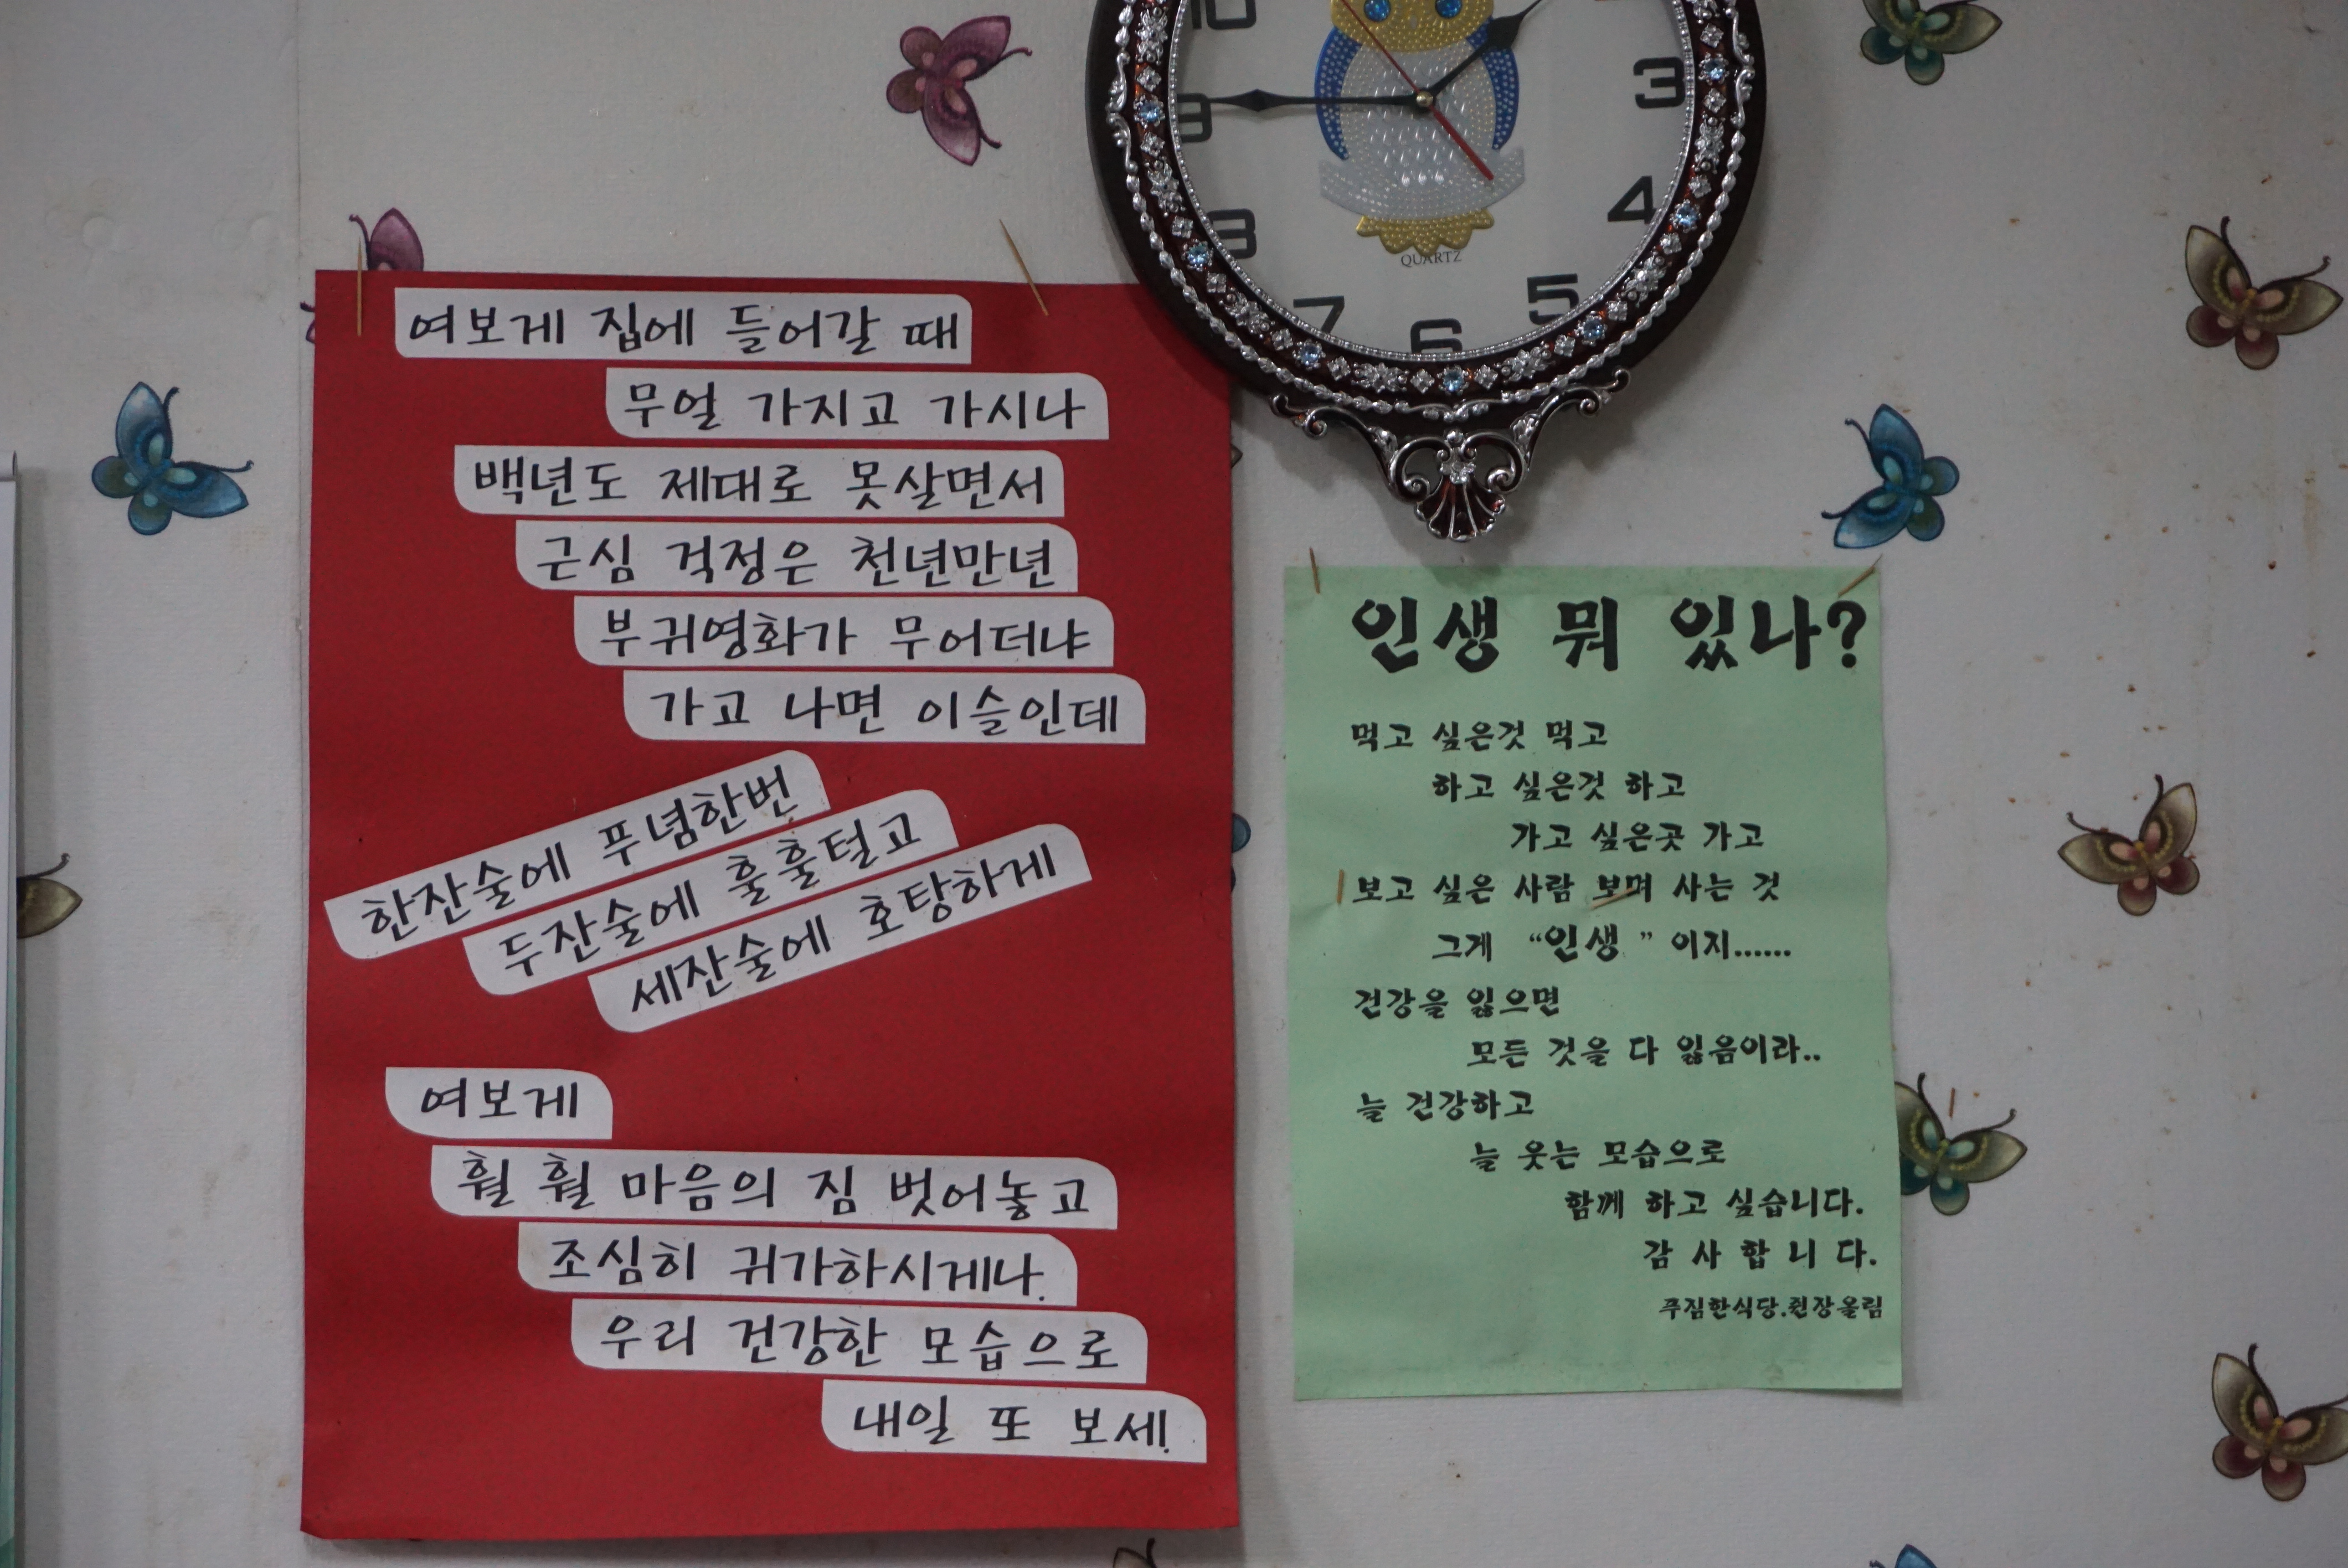 여보게 집에 들어갈 때
무얼 가지고 가시나
백년도 제대로 못살면서
근심 걱정은 천년만년
부귀영화가 무어더냐
가고 나면 이슬인데
한잔술에 푸념한번
두잔술에 훌훌털고
세잔술에 호탕하게
여보게
훨 훨 마음의 짐 벗어놓고
조심히 귀가하시게나.
우리 건강한 모습으로
내일 또 보세!
10
3
9
4
8
QUARTZ
5
7
6
인생 뭐 있나?
먹고 싶은것 먹고
하고 싶은것 하고
가고 싶은곳 가고
보고 싶은 사람 보며 사는 것
그게 “인생 ” 이지......
건강을 잃으면
모든 것을 다 잃음이라..
늘 건강하고
늘 웃는 모습으로
함께 하고 싶습니다.
감 사 합 니 다.
푸짐한식당.쥔장올림